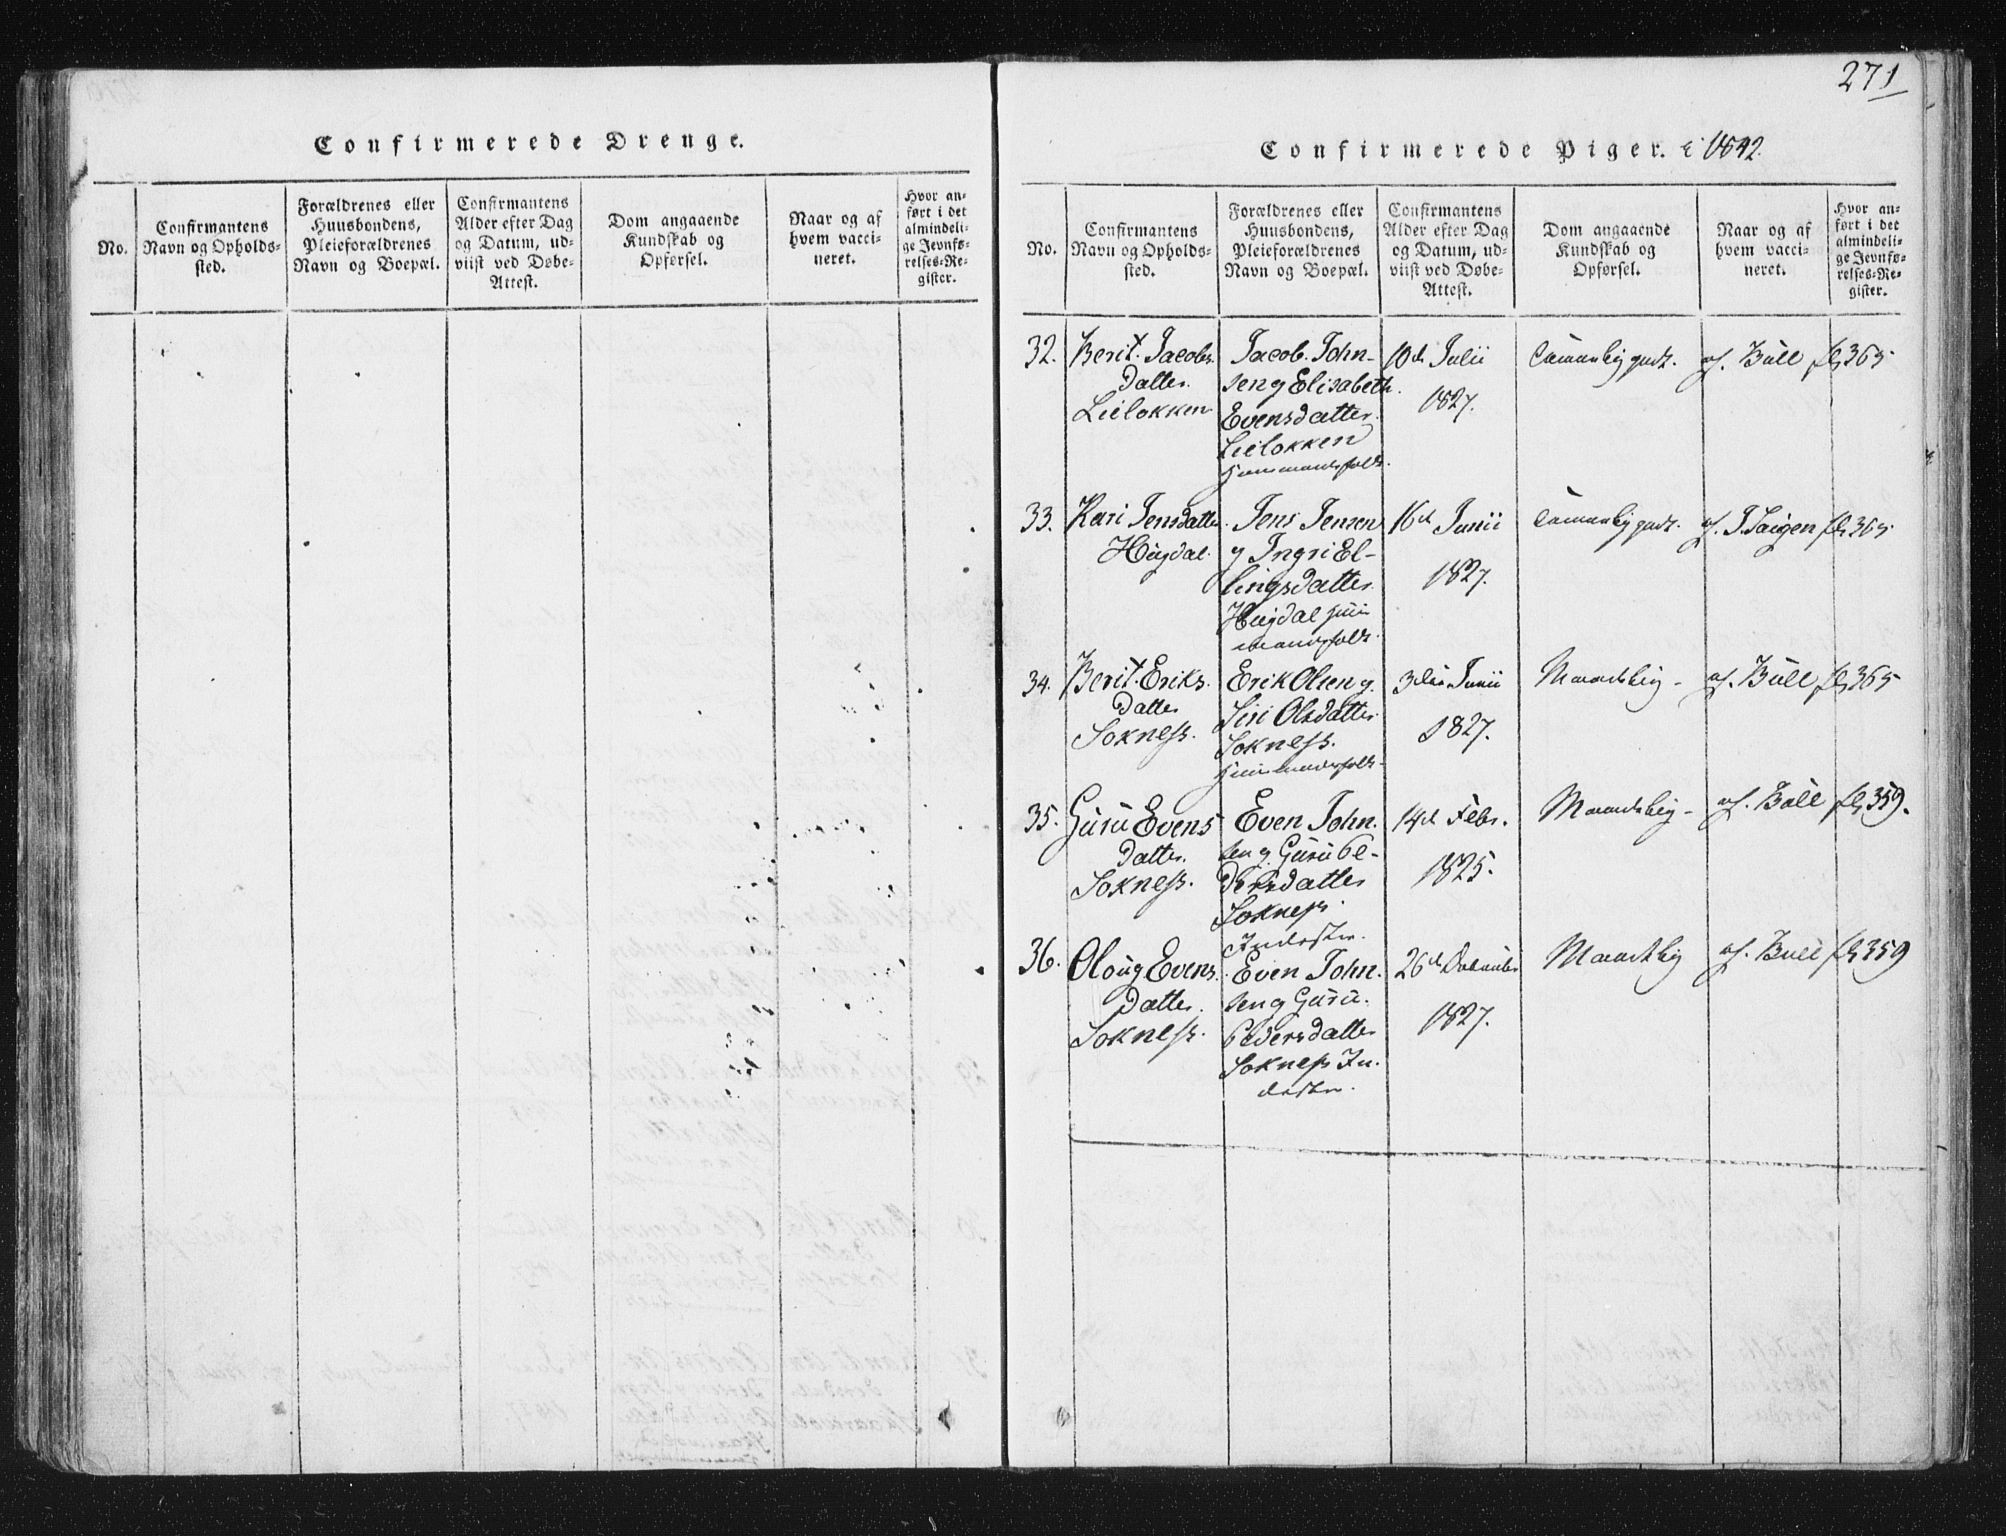 271
Confirmerede Drenge.
No.
Confirmantens
Navn og Opholds-
sted.
Forældrenes eller
Huusbondens,
Pleieforældrenes
Navn og Boepæl.
Confirmantens
Alder efter Dag
og Datum, ud-
viist ved Døbe-
Attest.
Dom angaaende
Kundskab og
Opførsel.
Naar og af
hvem vacci-
neret.
Hvor an-
ført i det
almindeli-
ge Jevnfø-
relses-Re-
gister.
Confirmerede Piger. i 1842.
No.
Confirmantens
Navn og Opholds-
sted.
Forældrenes eller
Huusbondens,
Pleieforældrenes
Navn og Boepæl.
Confirmantens
Alder efter Dag
og Datum, ud-
viist ved Døbe-
Attest.
Dom angaaende
Kundskab og
Opførsel.
Naar og af
hvem vacci-
neret.
Hvor an-
ført i det
almindeli-
ge Jevnfø-
relses-Re-
gister.
32.
Berit Jacobs
Datter
Lieløkken
Jacob John-
sen og Elisabeth
Evensdatter
Lieløkken
Huusmandsfolk.
10de Julii
1827.
Temmelig godt.
af Bull
fl 365
33.
Kari Jensdatter
Hugdal.
Jens Jensen
og Ingri El-
lingsdatter
Hugdal Huus
mandsfolk.
16de Junii
1827.
Temmelig godt.
af J. Saigen
fl 365
34.
Berit Eriks
Datter
Sokness.
Erik Olsen og
Siri Olsdatter
Sokness.
Huusmandsfolk.
3die Junii
1827.
Maadelig
af Bull
fl 365
35.
Guru Evens
Datter.
Sokness.
Even John.
sen og Guru Pe-
dersdatter
Sokness
Inderster.
14de Febr.
1825.
Maadelig
af Bull
fl 359.
36.
Oloug Evens
Datter.
Sokness.
Even John.
sen og Guru
Pedersdatter
Sokness In-
derster.
26de December
1827.
Maadelig
af Bull
fl 359